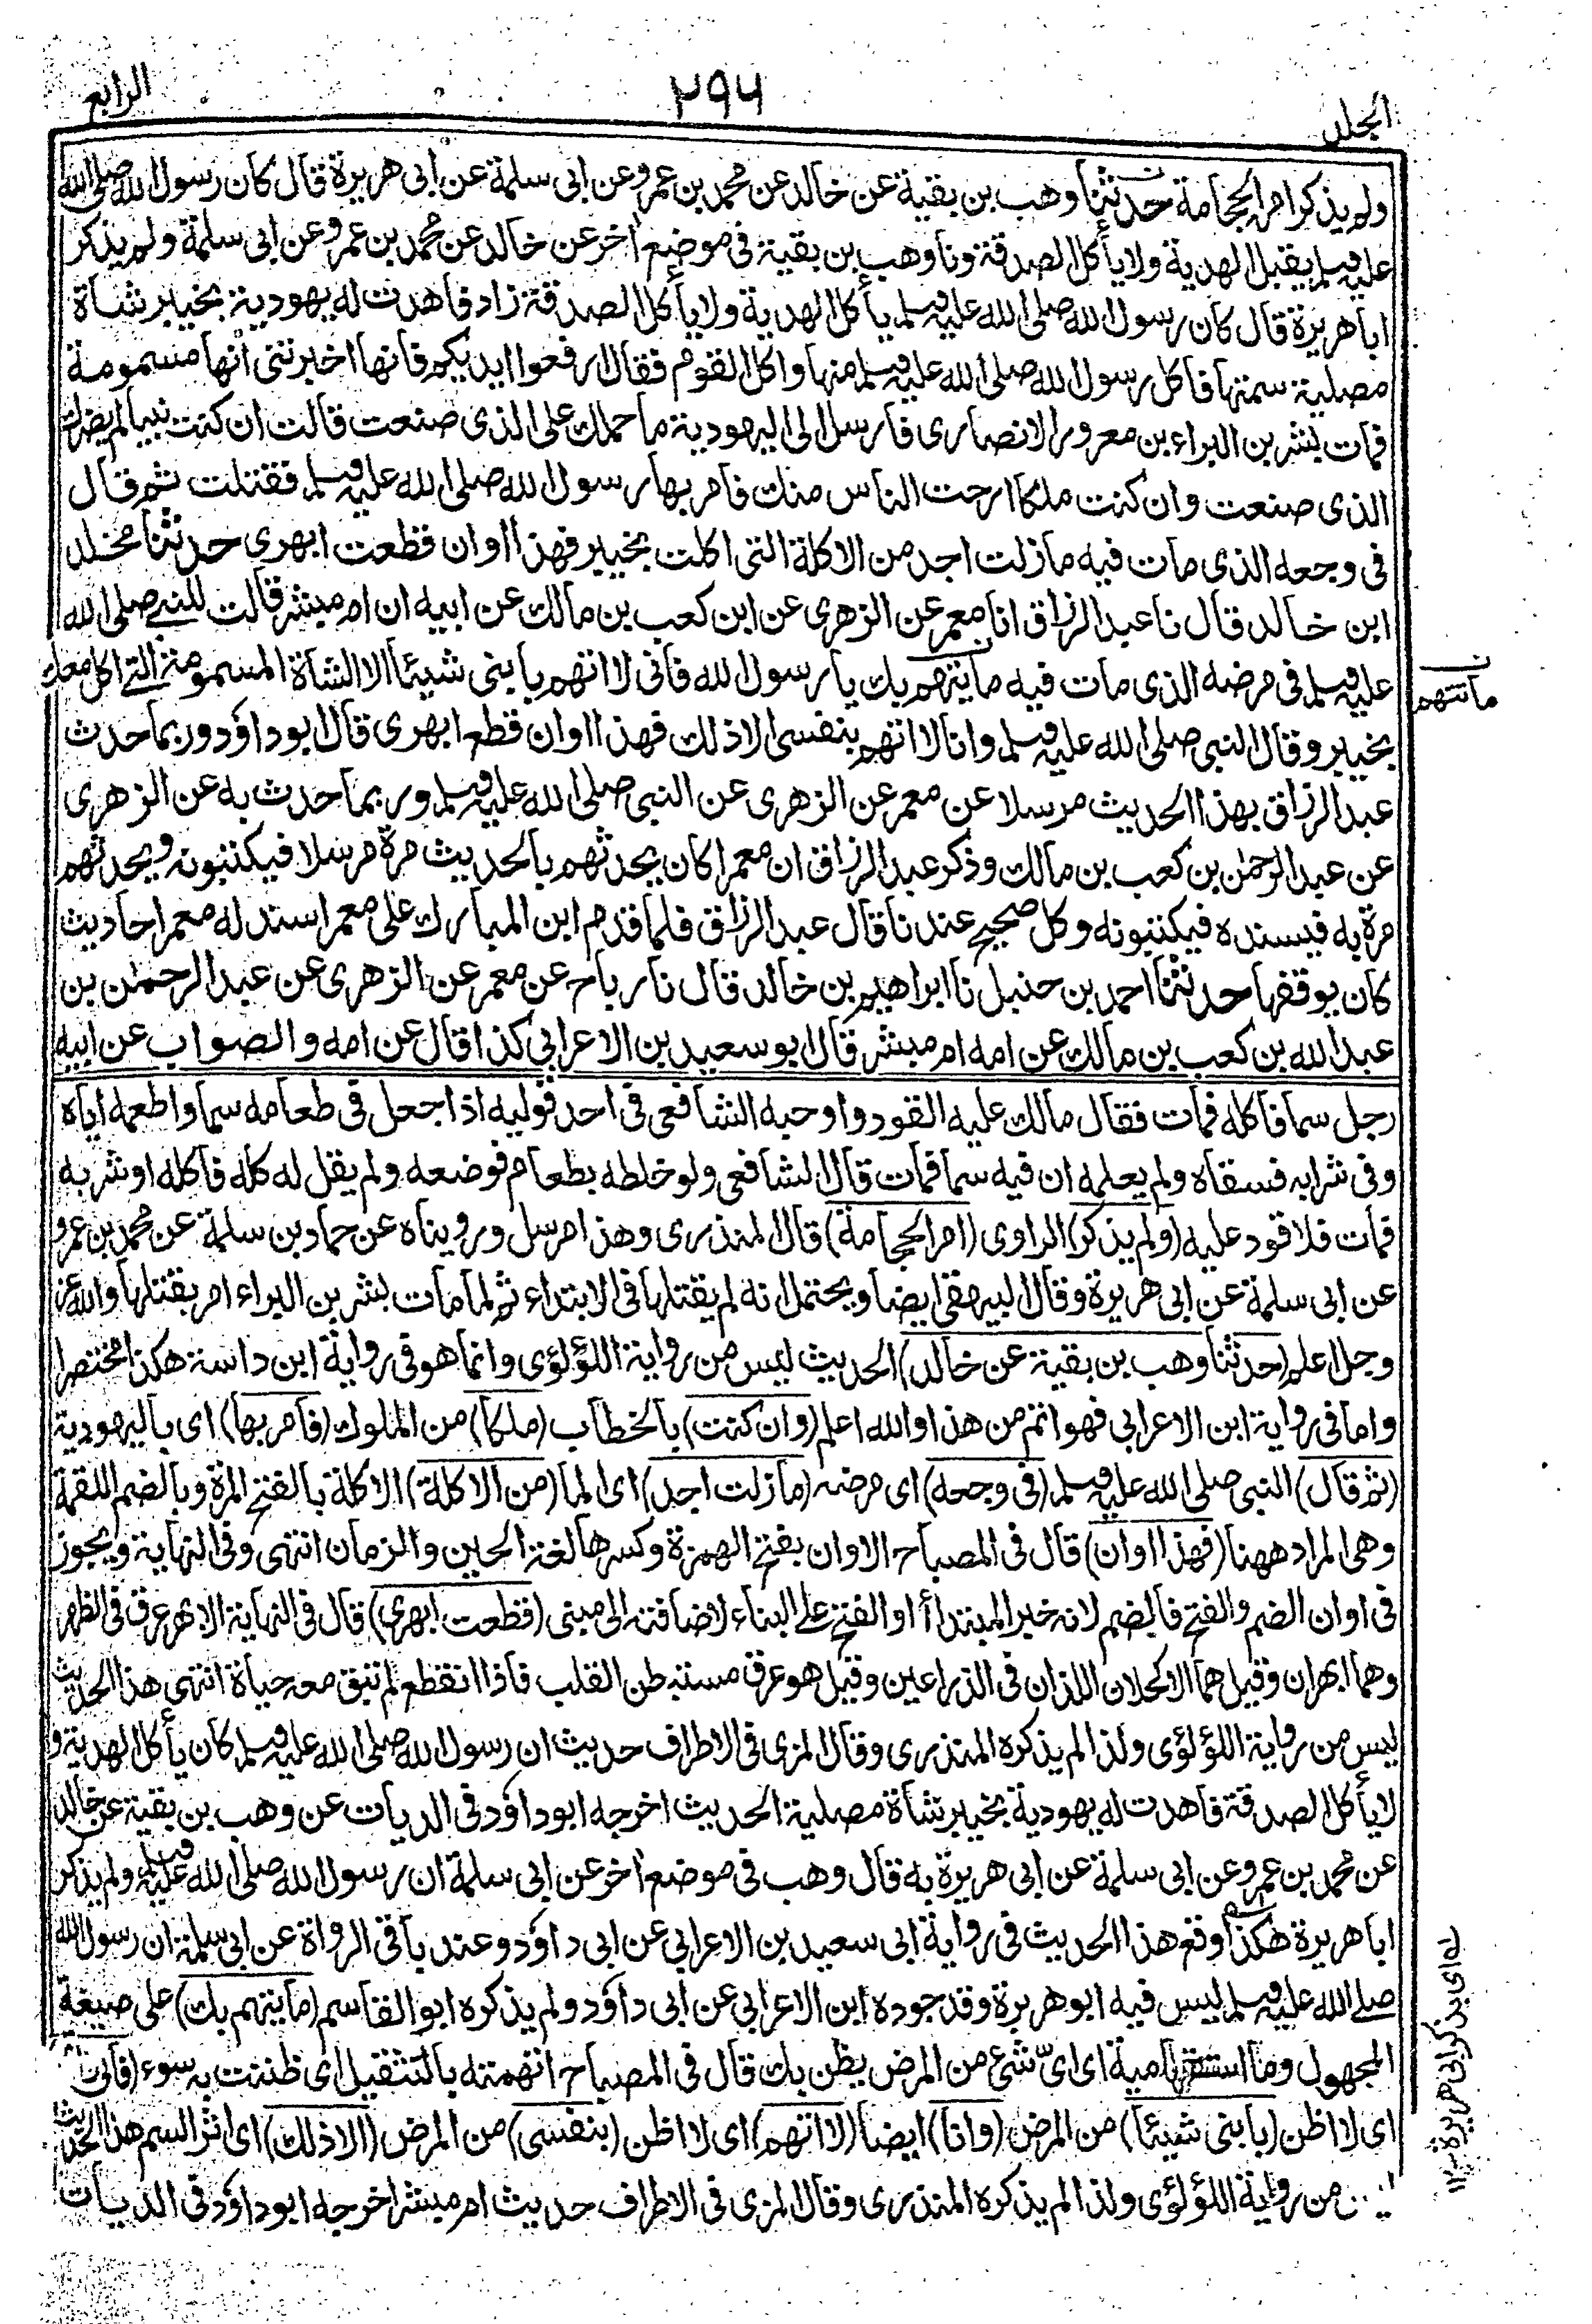 الجلد
٢٩٤
الرابع
ولم يذكر امر الحجامة حدثنا وهب بن بقية عن خالد عن محمد بن عمرو عن ابى سلمة عن ابى هريرة قال كان رسول الله صلى الله
عليه وسلم يقبل الهدية ولا يأكل الصدقة ونا وهب بن بقية فى موضع اخر عن خالد عن محمد بن عمرو عن ابى سلمة ولم يذكر
ابا هريرة قال كان رسول الله صلى الله عليه وسلم يأكل الهدية ولا يأكل الصدقة زاد فاهدت له يهودية بخيبر شاة
مصلية سمتها فاكل رسول الله صلى الله عليه وسلم منها واكل القوم فقال ارفعوا ايديكم فانها اخبرتنى انها مسمومة
فمات بشر بن البراء بن معرور الانصارى فارسل الى اليهودية ما حملك على الذى صنعت قالت ان كنت نبيا لم يضرك
الذى صنعت وان كنت ملكا ارحت الناس منك فامر بها رسول الله صلى الله عليه وسلم فقتلت ثم قال
فى وجعه الذى مات فيه ما زلت اجد من الاكلة التى اكلت بخيبر فهذا اوان قطعت ابهرى حدثنا مخلد
ابن خالد قال نا عبد الرزاق انا معمر عن الزهرى عن ابن كعب بن مالك عن ابيه ان ام مبشر قالت للنبى صلى الله
عليه وسلم فى مرضه الذى مات فيه ما يتهم بك يا رسول الله فانى لا اتهم بابنى شيئا الا الشاة المسمومة التى اكل معك
بخيبر وقال النبى صلى الله عليه وسلم وانا لا اتهم بنفسى الا ذلك فهذا اوان قطع ابهرى قال ابو داؤد وربما حدث
عبد الرزاق بهذا الحديث مرسلا عن معمر عن الزهرى عن النبى صلى الله عليه وسلم وربما حدث به عن الزهرى
عن عبد الرحمن بن كعب بن مالك وذكر عبد الرزاق ان معمرا كان يحدثهم بالحديث مرة مرسلا فيكتبونه ويحدثهم
مرة به فيسنده فيكتبونه وكل صحيح عندنا قال عبد الرزاق فلما قدم ابن المبارك على معمر اسند له معمر احاديث
كان يوقفها حدثنا احمد بن حنبل نا ابراهيم بن خالد قال نا رباح عن معمر عن الزهرى عن عبد الرحمن بن
عبد الله بن كعب بن مالك عن امه ام مبشر قال ابو سعيد بن الاعرابى كذا قال عن امه والصواب عن ابيه
ما تتهم
رجل سما فاكله فمات فقال مالك عليه القود واوجبه الشافعى فى احد قوليه اذا جعل فى طعامه سما واطعمه اياه
وفى شرابه فسقاه ولم يعلمه ان فيه سما فمات قال الشافعى ولو خلطه بطعام فوضعه ولم يقل له كله فاكله او شربه
فمات فلا قود عليه (ولم يذكر) الراوى (امر الحجامة) قال المنذرى وهذا مرسل ورويناه عن حماد بن سلمة عن محمد بن عمرو
عن ابى سلمة عن ابى هريرة وقال البيهقى ايضا ويحتمل انه لم يقتلها فى الابتداء ثم لما مات بشر بن البراء امر بقتلها والله عز
وجل اعلم (حدثنا وهب بن بقية عن خالد) الحديث ليس من رواية اللؤلؤى وانما هو فى رواية ابن داسة هكذا مختصرا
واما فى رواية ابن الاعرابى فهو اتم من هذا والله اعلم (وان كنت) بالخطاب (ملكا) من الملوك (فامر بها) اى باليهودية
(ثم قال) النبى صلى الله عليه وسلم (فى وجعه) اى مرضه (ما زلت اجد) اى الما (من الاكلة) الاكلة بالفتح المرة وبالضم اللقمة
وهى المراد ههنا (فهذا اوان) قال فى المصباح الاوان بفتح الهمزة وكسرها لغة الحين والزمان انتهى وفى النهاية ويجوز
فى اوان الضم والفتح فالضم لانه خبر المبتدأ والفتح على البناء لاضافته الى مبنى (قطعت ابهرى) قال فى النهاية الابهر عرق فى الظهر
وهما ابهران وقيل هما الاكحلان اللذان فى الذراعين وقيل هو عرق مستبطن القلب فاذا انقطع لم تبق معه حياة انتهى هذا الحديث
ليس من رواية اللؤلؤى ولذا لم يذكره المنذرى وقال المزى فى الاطراف حديث ان رسول الله صلى الله عليه وسلم كان يأكل الهدية و
لا يأكل الصدقة فاهدت له يهودية بخيبر شاة مصلية الحديث اخرجه ابو داؤد فى الديات عن وهب بن بقية عن خالد
عن محمد بن عمرو عن ابى سلمة عن ابى هريرة به قال وهب فى موضع اخر عن ابى سلمة ان رسول الله صلى الله عليه وسلم ولم يذكر
ابا هريرة هكذا وقع هذا الحديث فى رواية ابى سعيد بن الاعرابى عن ابى داؤد وعند باقى الرواة عن ابى سلمة ان رسول الله
صلى الله عليه وسلم ليس فيه ابو هريرة وقد جوده ابن الاعرابى عن ابى داؤد ولم يذكره ابو القاسم (ما يتهم بك) على صيغة
المجهول وما استفهامية اى اى شئ من المرض يظن بك قال فى المصباح اتهمته بالتثقيل اى ظننت به سوء (فانى
اى لا اظن (بابنى شيئا) من المرض (وانا) ايضا (لا اتهم) اى لا اظن (بنفسى) من المرض (الا ذلك) اى اثر السم هذا الحديث
من رواية اللؤلؤى ولذا لم يذكره المنذرى وقال المزى فى الاطراف حديث ام مبشر اخرجه ابو داؤد فى الديات
له اى بذكر ابى هريرة ١٢